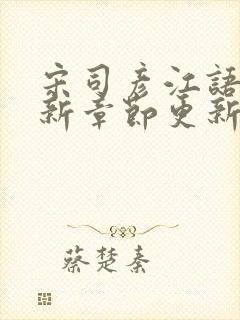 宋司彦江語
新章節更新
蔡楚秦